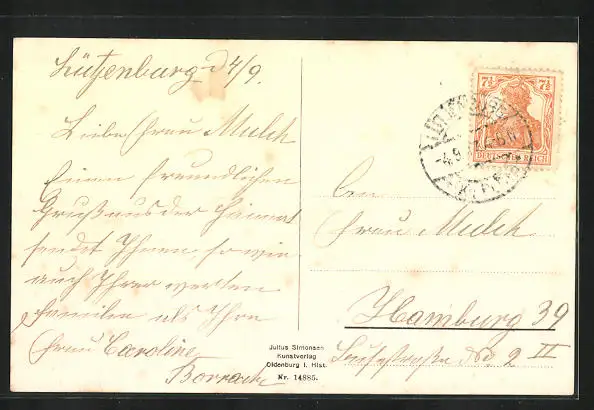 Lütjenburg d 4/9.
Liebe Frau Mulch
Einen freundlichen
Gruß aus der Heimat
sendet Ihnen, sowie
auch Ihrer werten
Familie als Ihre
Frau Caroline
Julius Simonsen
Kunstverlag
Oldenburg i. Hlst.
Nr. 14885.
7½ 7½
DEUTSCHES REICH
-4.9.
Frau Mulch
Hamburg 39
No. 2 II